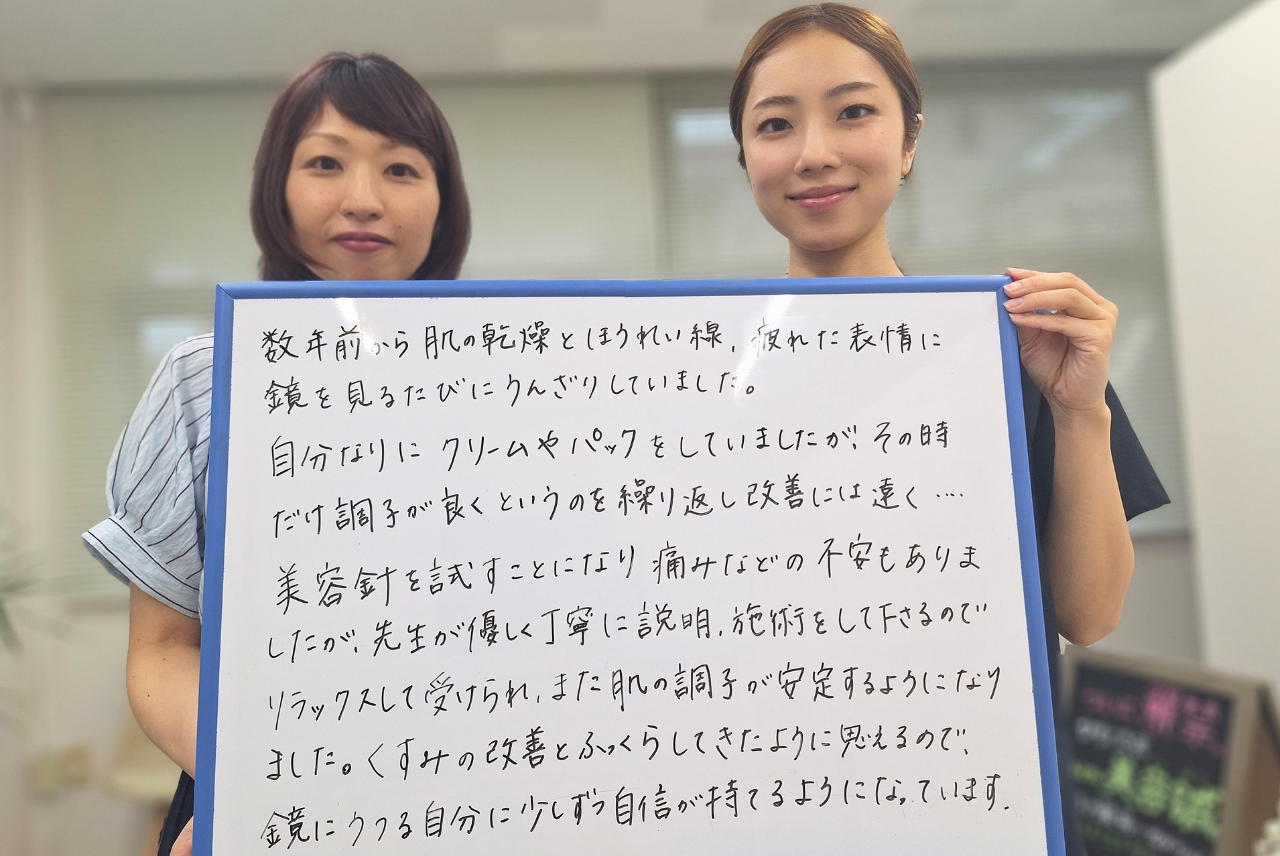 数年前から肌の乾燥とほうれい線、疲れた表情に
鏡を見るたびにうんざりしていました。
自分なりにクリームやパックをしていましたが、その時
だけ調子が良くというのを繰り返し改善には遠く‥‥
美容針を試すことになり痛みなどの不安もありま
したが、先生が優しく丁寧に説明、施術をして下さるので
リラックスして受けられ、また肌の調子が安定するようになり
ました。くすみの改善とふっくらしてきたように思えるので、
鏡にうつる自分に少しずつ自信が持てるようになっています.